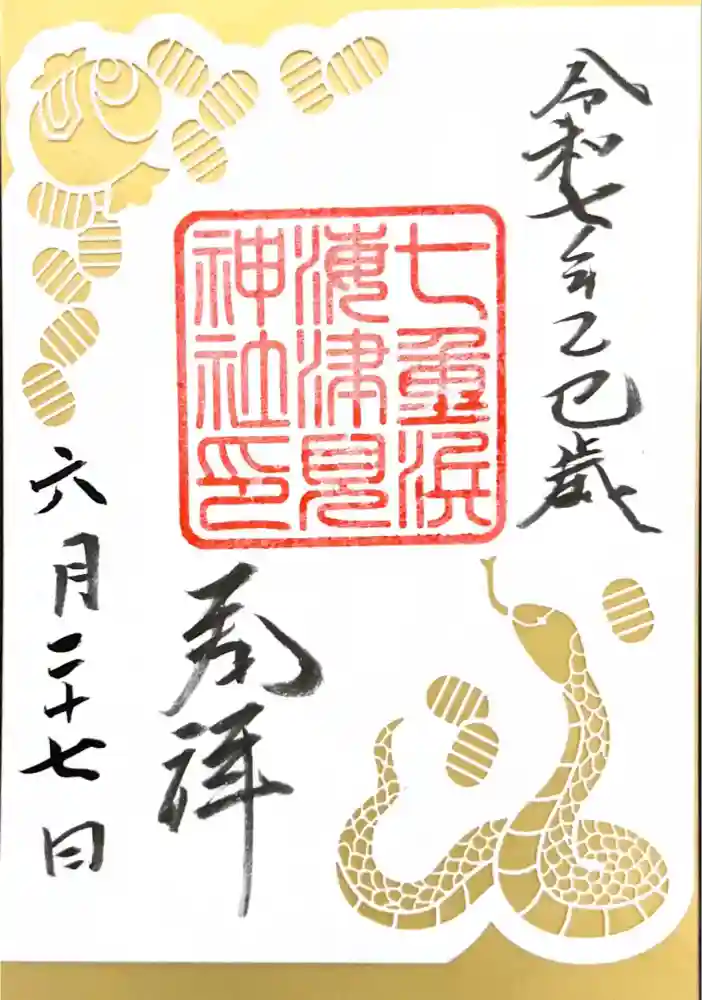 令和七年乙巳歳
七重浜
海津見
神社印
奉拝
六月二十七日